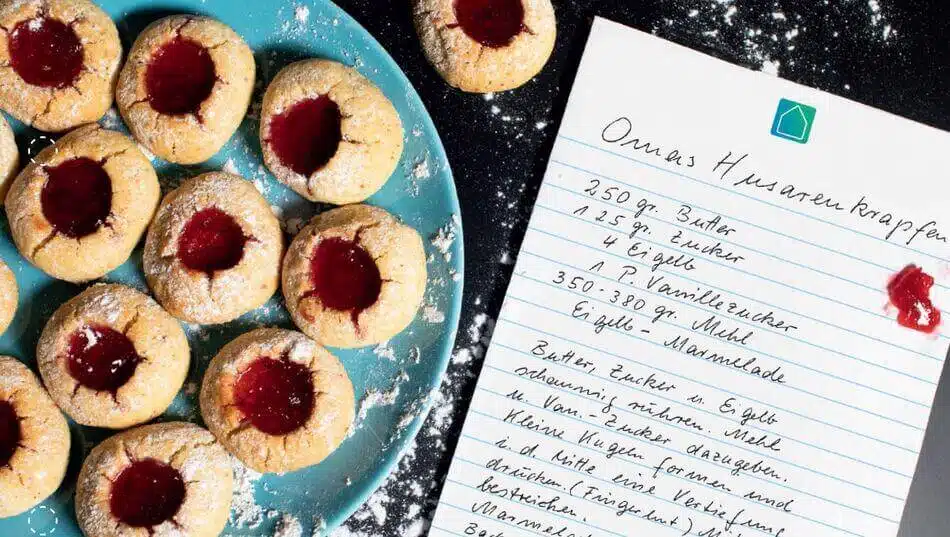 Omas Husarenkrapfen
250 gr. Butter
125 gr. Zucker
4 Eigelb
1 P. Vanillezucker
350-380 gr. Mehl
Eigelb-
Marmelade
Butter, Zucker u. Eigelb
schaumig rühren. Mehl
u. Van.-Zucker dazugeben.
Kleine Kugeln formen und
i. d. Mitte eine Vertiefung
drücken. (Fingerhut) Mi
bestreichen.
Marmela
Back